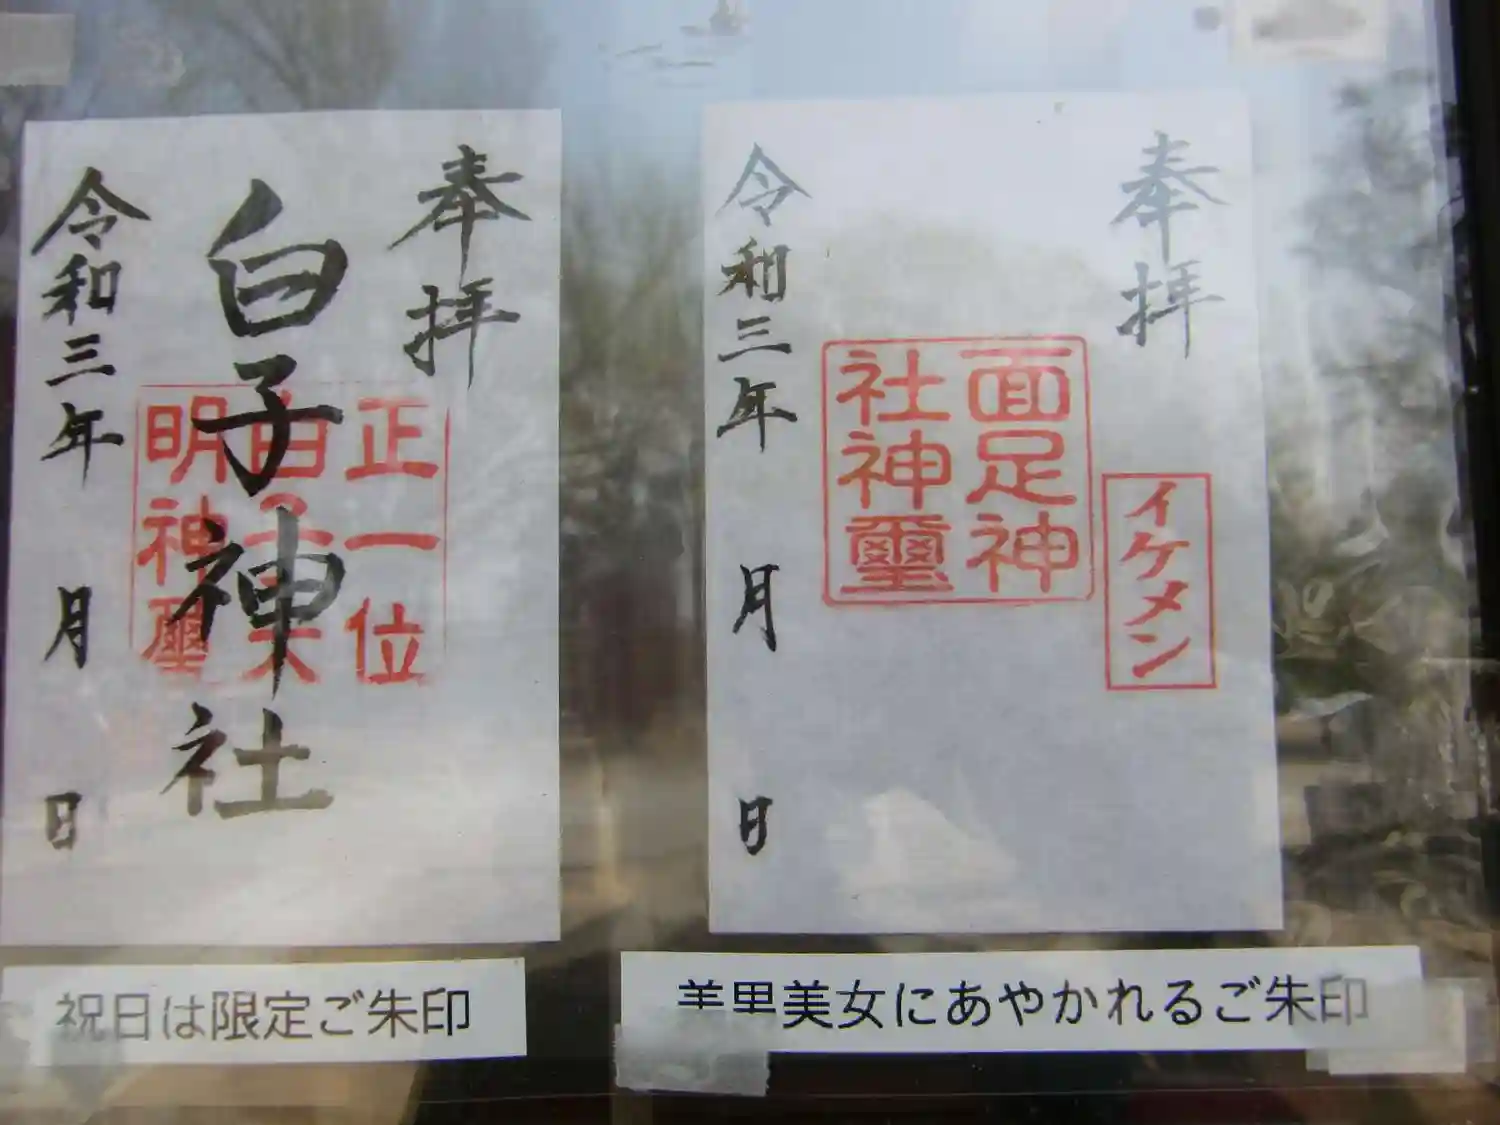 奉拝
白子神社
正一位
白子大
明神璽
令和三年 月 日
祝日は限定ご朱印
奉拝
イケメン
面足神
社神璽
令和三年 月 日
美男美女にあやかれるご朱印